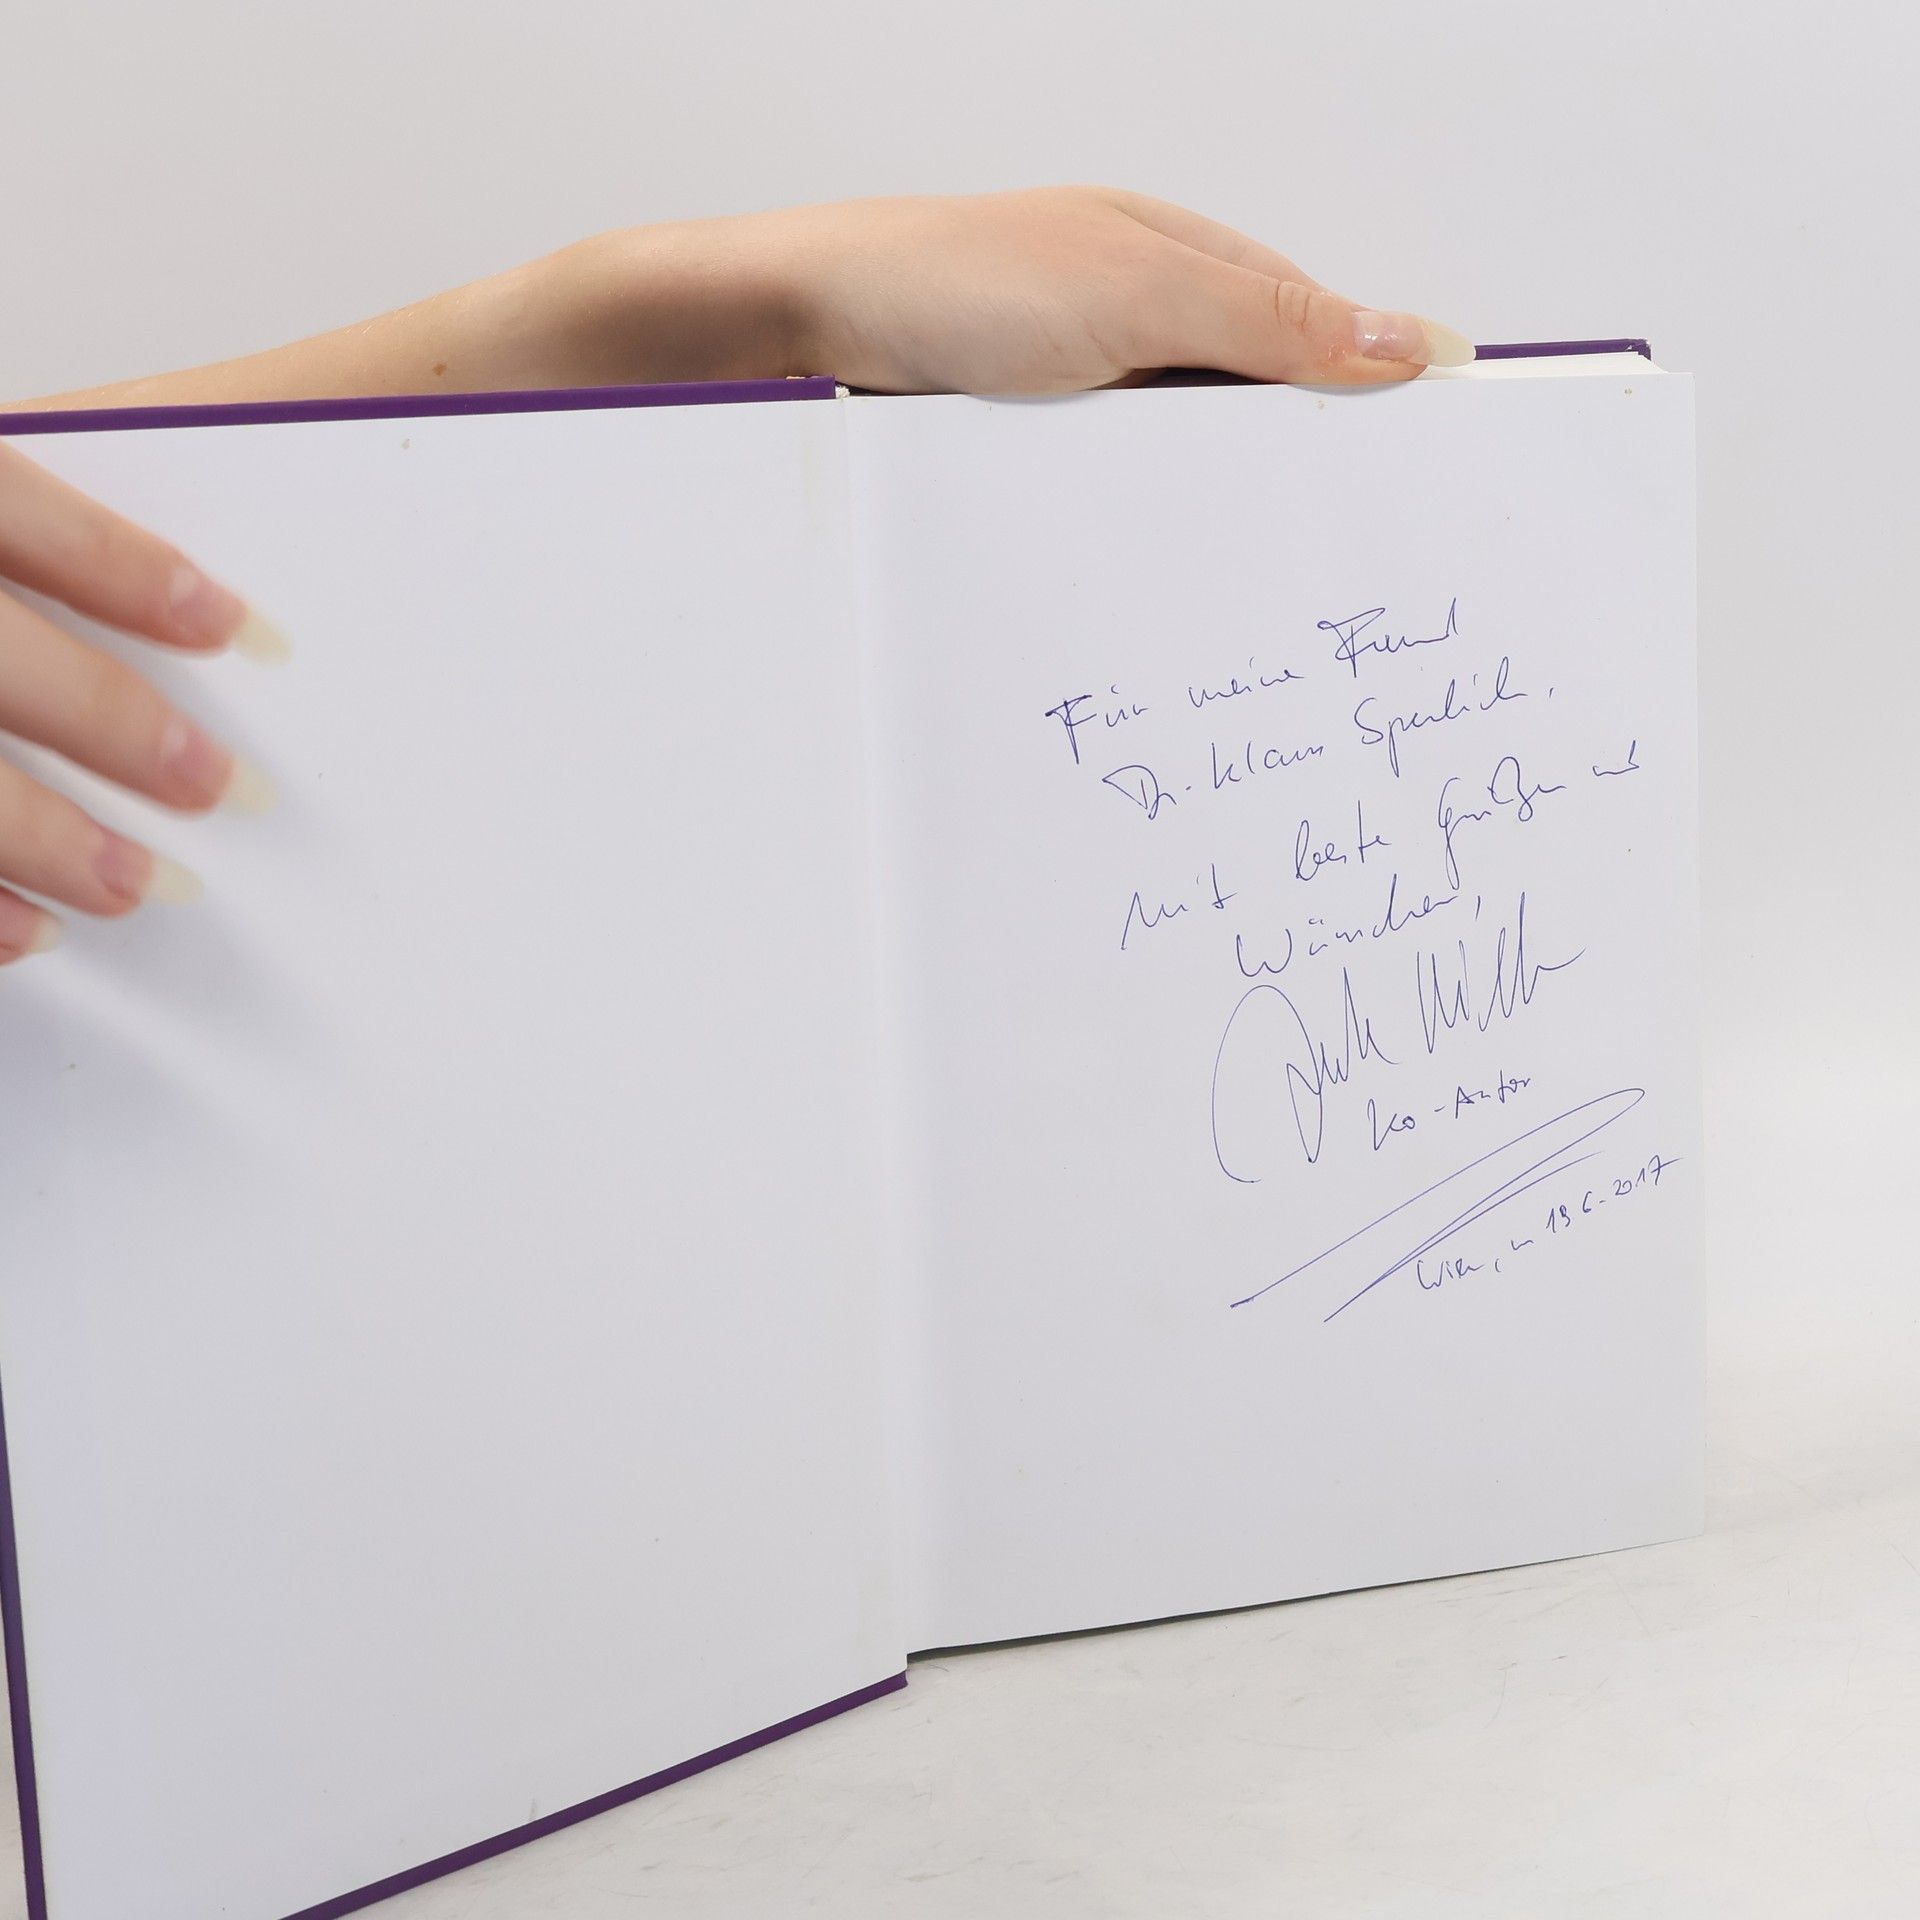 Für meine Freund
Dr. Klaus Sperlich,
Mit beste Grüßen und
Wünschen,
Ko-Autor
Wien, am 19.6.2017